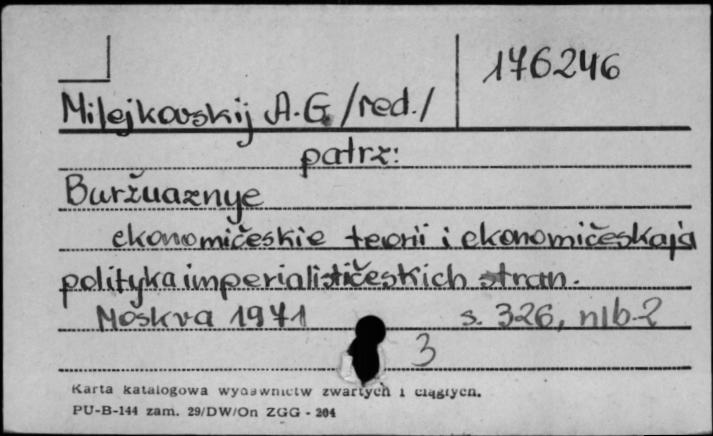 176246
Milejkovskij A.G. /red./
patrz:
Buržuaznye
ekonomičeskie teorii i ekonomičeskaja
polityka imperialističeskich stran.
Moskva 1971 s. 326, nlb. 2
3
Karta katalogowa wydawnictw zwartych i ciągłych.
PU-B-144 zam. 29/DW/On ZGG - 204